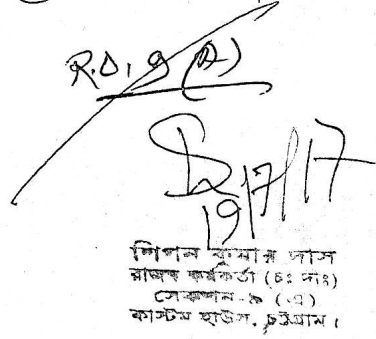 R.O, 9 (A)
19/7/17
লিপন কুমার দাস
রাজস্ব কর্মকর্তা (চঃ দাঃ)
সেকশন-৯ (এ)
কাস্টম হাউস, চট্টগ্রাম।